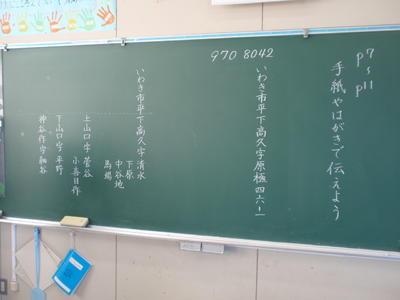 p7
〜
p11
手紙やはがきで伝えよう
970 8042
いわき市平下高久字原極四六ー一
いわき市平下高久字清水
下原
中谷地
馬場
上山口字 菅谷
小喜目作
下山口字 平野
神谷作字